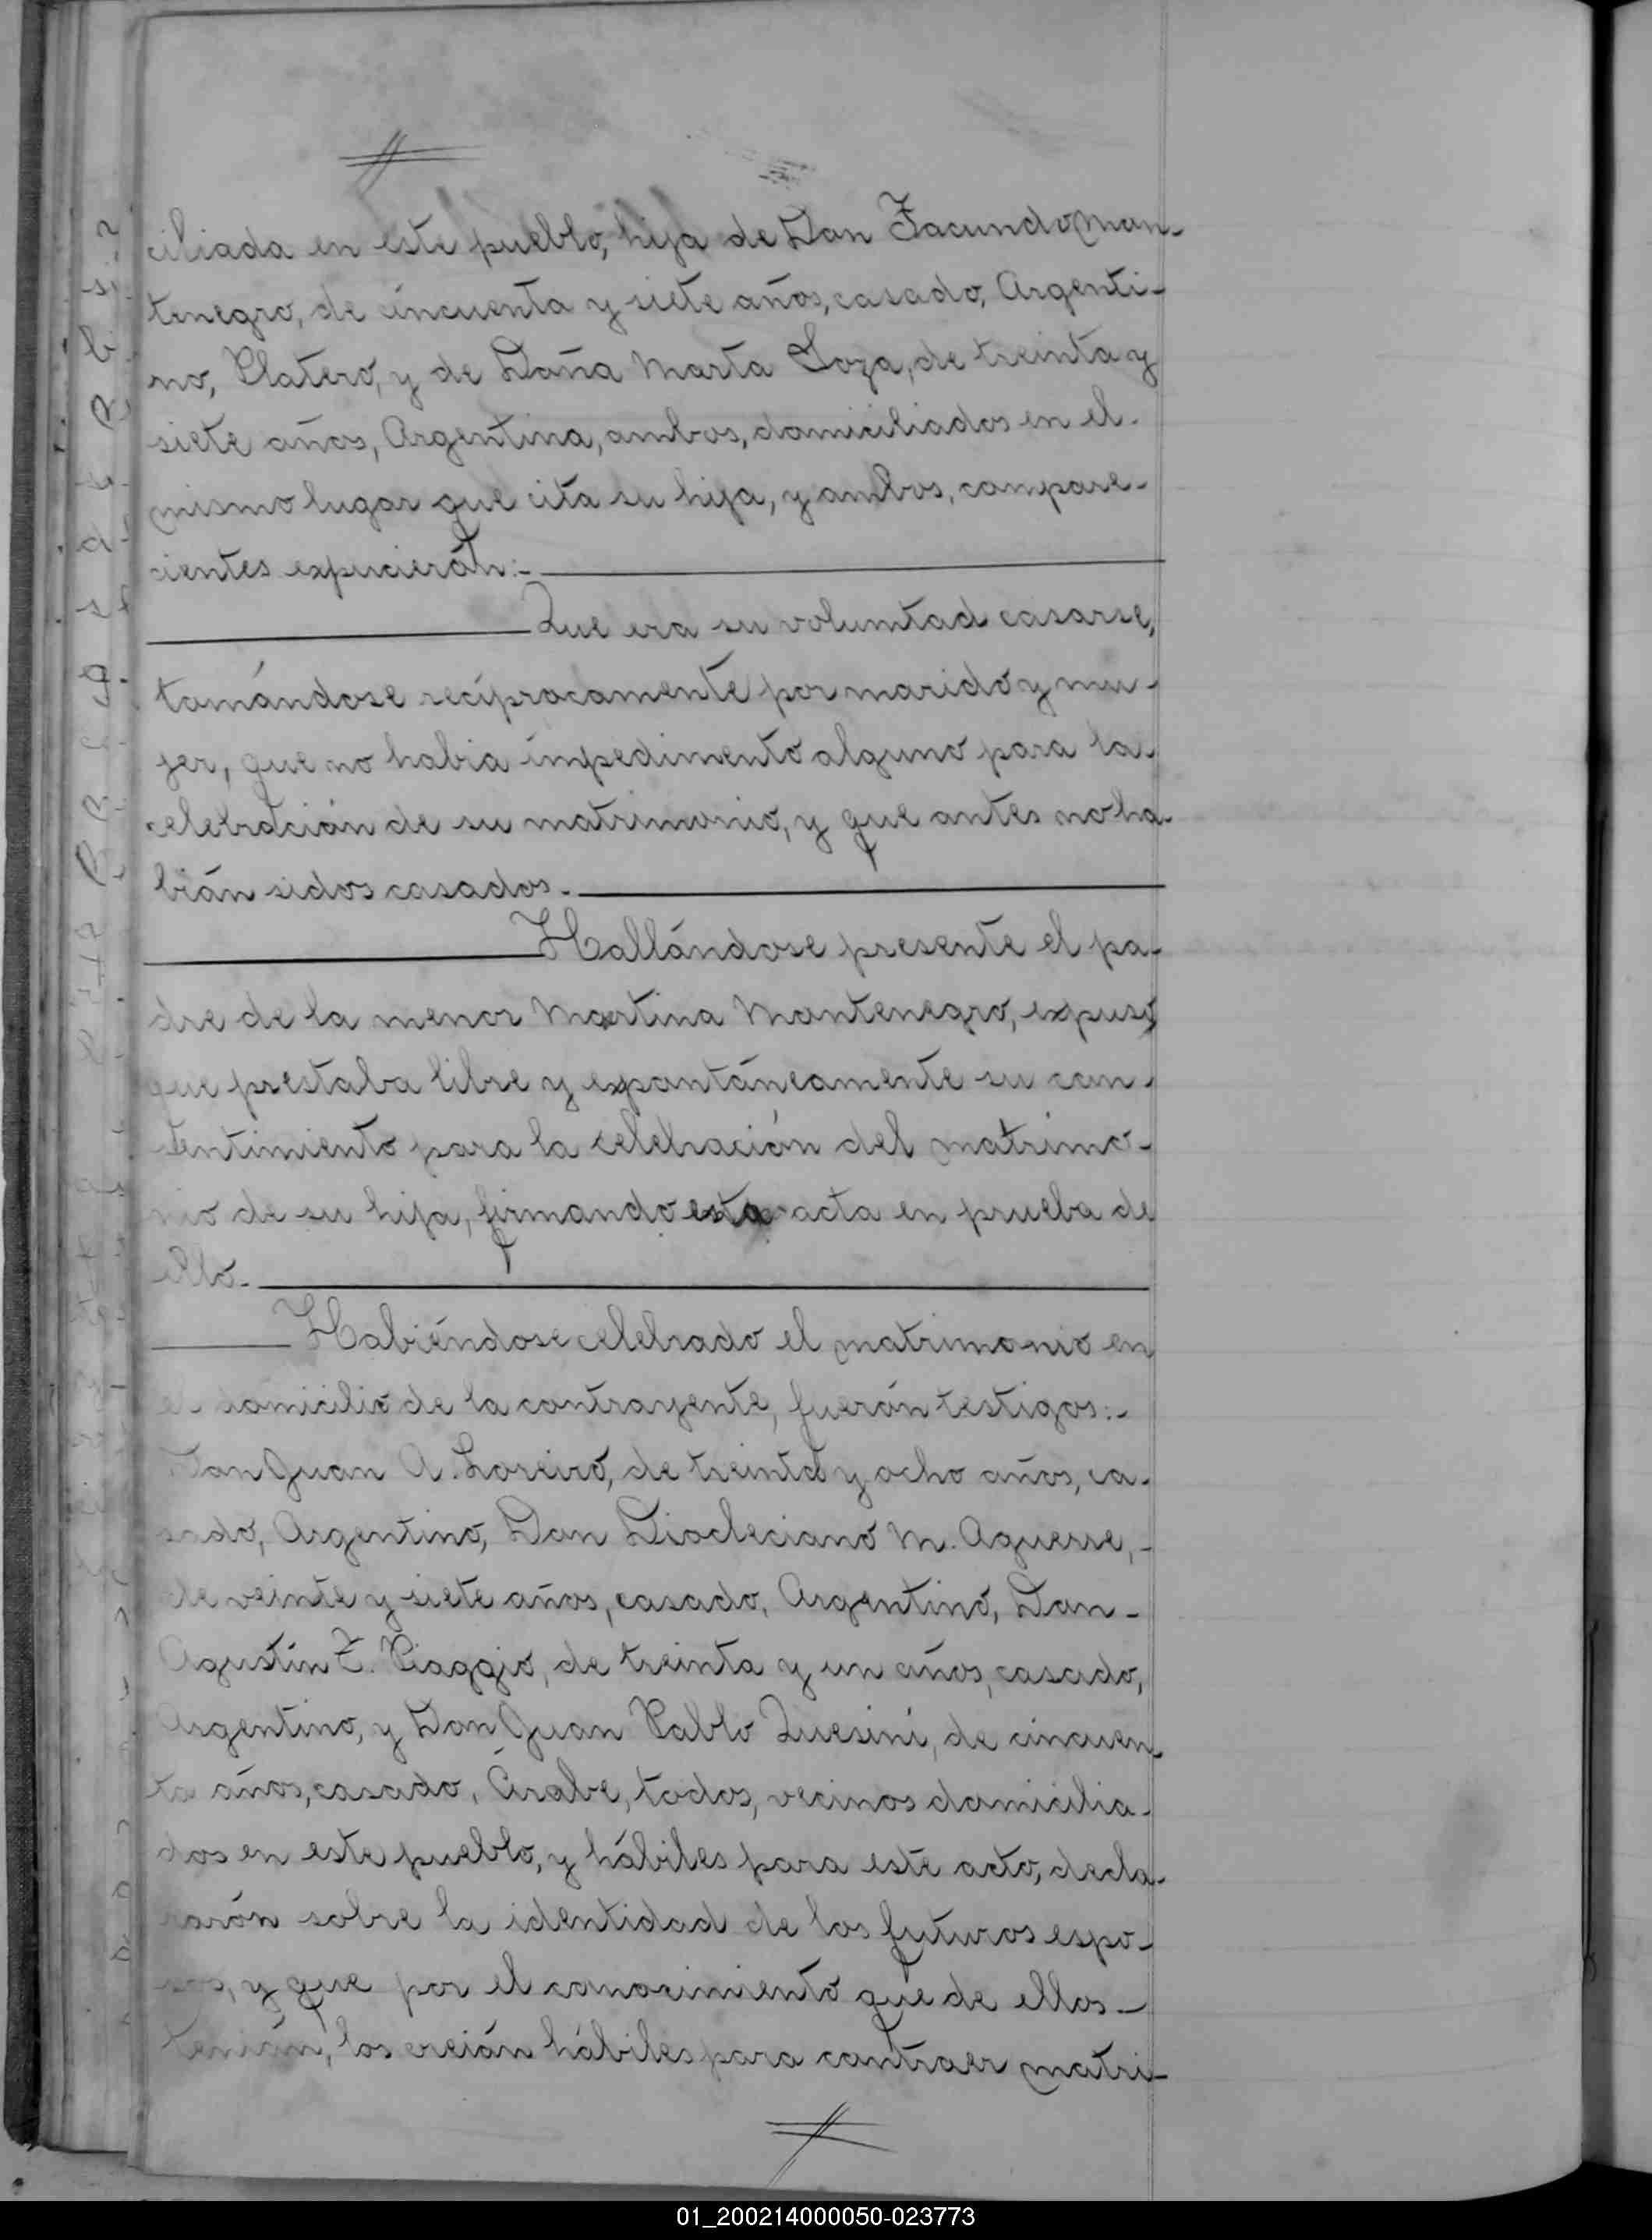 ciliada en este pueblo, hija de Don Facundo Mon-
tenegro, de cincuenta y siete años, casado, Argenti-
no, Platero, y de Doña Marta Soza, de treinta y
siete años, Argentina, ambos, domiciliados en el-
mismo lugar que cita su hija, y ambos, compare-
cientes expucierón:-
Que era su voluntad casarse,
tomándose recíprocamente por marido y mu-
jer, que no habia impedimento alguno para la-
celebración de su matrimonio, y que antes no ha-
bián sidos casados.-
Hallándose presente el pa-
dre de la menor Martina Montenegro, expuso
que prestaba libre y expontáneamente su con-
sentimiento para la celebración del matrimo-
nio de su hija, firmando esta acta en prueba de
ello.-
Habiéndose celebrado el matrimonio en
el domicilio de la contrayente, fuerón testigos:-
Don Juan A. Loreiro, de treinta y ocho años, ca-
sado, Argentino, Don Diocleciano M. Aguerre,-
de veinte y siete años, casado, Argentino, Don-
Agustín E. Piaggio, de treinta y un años, casado,
Argentino, y Don Juan Pablo Quesini, de cincuen-
ta años, casado, Árabe, todos, vecinos domicilia-
dos en este pueblo, y hábiles para este acto, decla-
rarón sobre la identidad de los futuros espo-
sos, y que por el conocimiento que de ellos-
tenián, los creián hábiles para contraer matri-
01_200214000050-023773